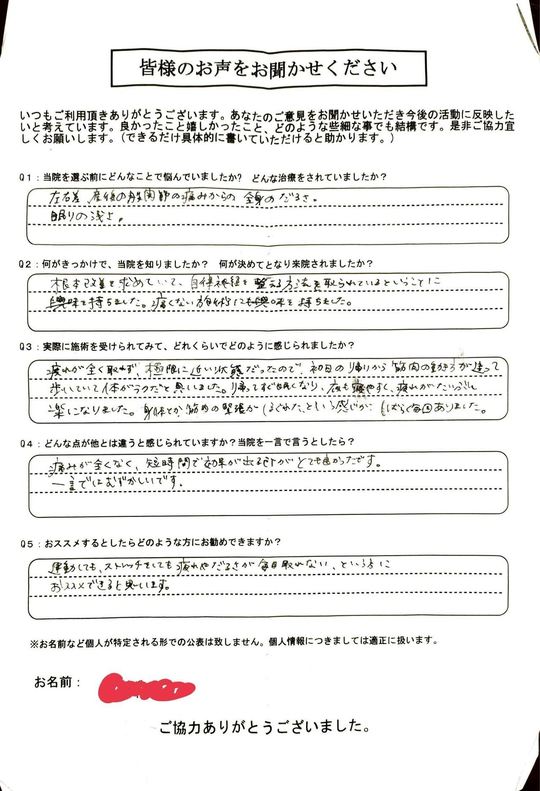 皆様のお声をお聞かせください
いつもご利用頂きありがとうございます。あなたのご意見をお聞かせいただき今後の活動に反映した
いと考えています。良かったこと嬉しかったこと、どのような些細な事でも結構です。是非ご協力宜
しくお願いします。(できるだけ具体的に書いていただけると助かります。)
Q1：当院を選ぶ前にどんなことで悩んでいましたか？ どんな治療をされていましたか？
左右差、産後の股関節の痛みからの全身のだるさ。
眠りの浅さ。
Q2：何がきっかけで、当院を知りましたか？ 何が決めてとなり来院されましたか？
根本改善を求めていて、自律神経を整える方法を取られているということに
興味を持ちました。痛くない施術にも興味を持ちました。
Q3：実際に施術を受けられてみて、どれくらいでどのように感じられましたか？
疲れが全く取れず、極限に近い状態だったので、初日の帰りから筋肉の動き方が違って
歩いていて体がラクだと思いました。帰ってすぐ眠くなり、夜も寝やすく、疲れがだいぶ
楽になりました。身体とか筋肉の緊張がほぐれたという感じが しばらく毎回ありました。
Q4：どんな点が他とは違うと感じられていますか？当院を一言で言うとしたら？
痛みが全くなく、短時間で効果が出る所がとても良かったです。
一言ではむずかしいです。
Q5：おススメするとしたらどのような方にお勧めできますか？
運動しても、ストレッチをしても疲れやだるさが毎日取れない、という方に
おススメできると思います。
※お名前など個人が特定される形での公表は致しません。個人情報につきましては適正に扱います。
お名前：
ご協力ありがとうございました。